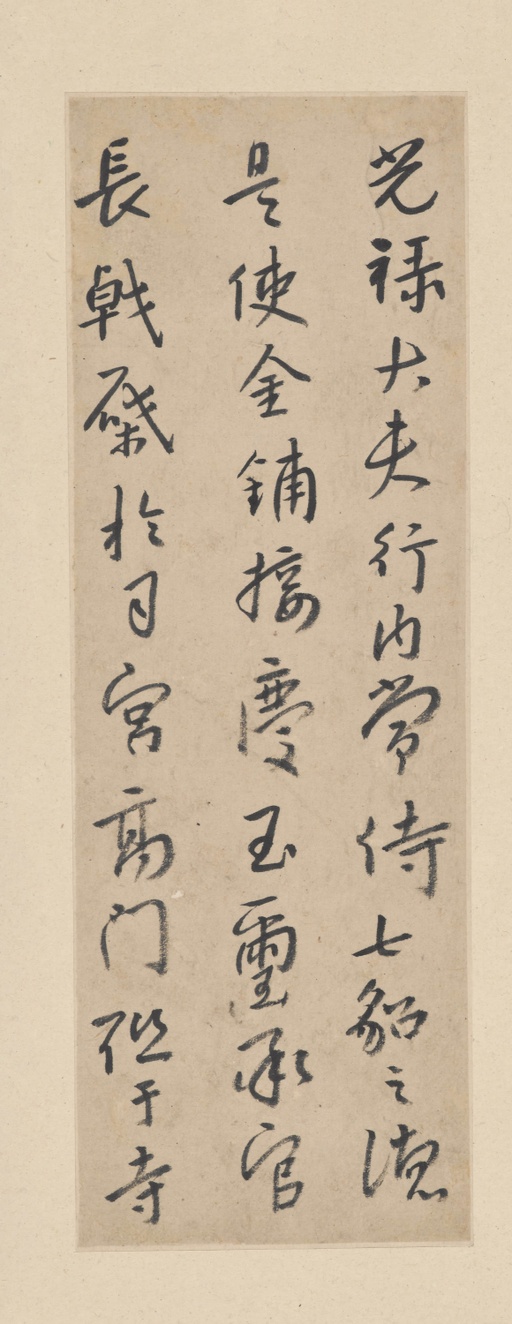 光祿大夫行內常侍七貂之德
是使金鋪接慶玉璽承官
長戟於司宮高門于寺